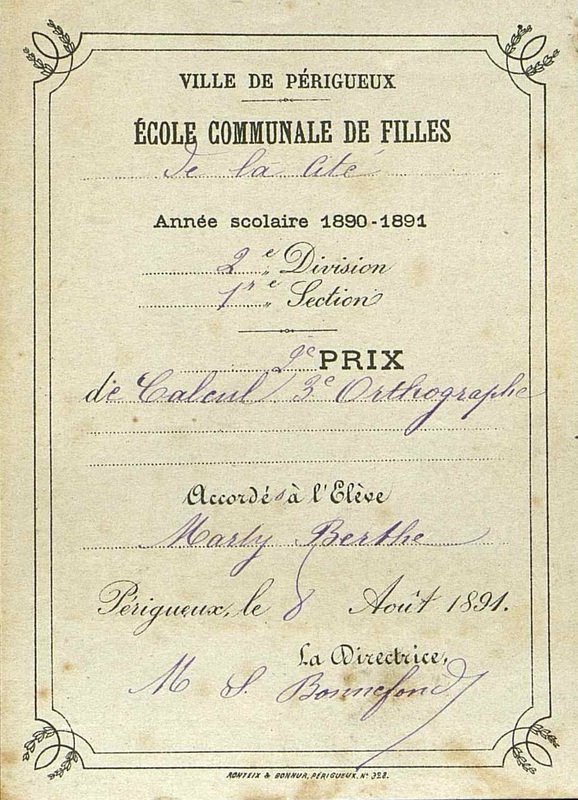 VILLE DE PÉRIGUEUX
ÉCOLE COMMUNALE DE FILLES
de la Cité
Année scolaire 1890-1891
2e Division
1re Section
2e PRIX
de Calcul 3e Orthographe
Accordés à l'Elève
Marty Berthe
Périgueux, le 8 Août 1891.
La Directrice,
M S. Bonnefond
RONTEIX & BONNUR, PÉRIGUEUX. No 328.